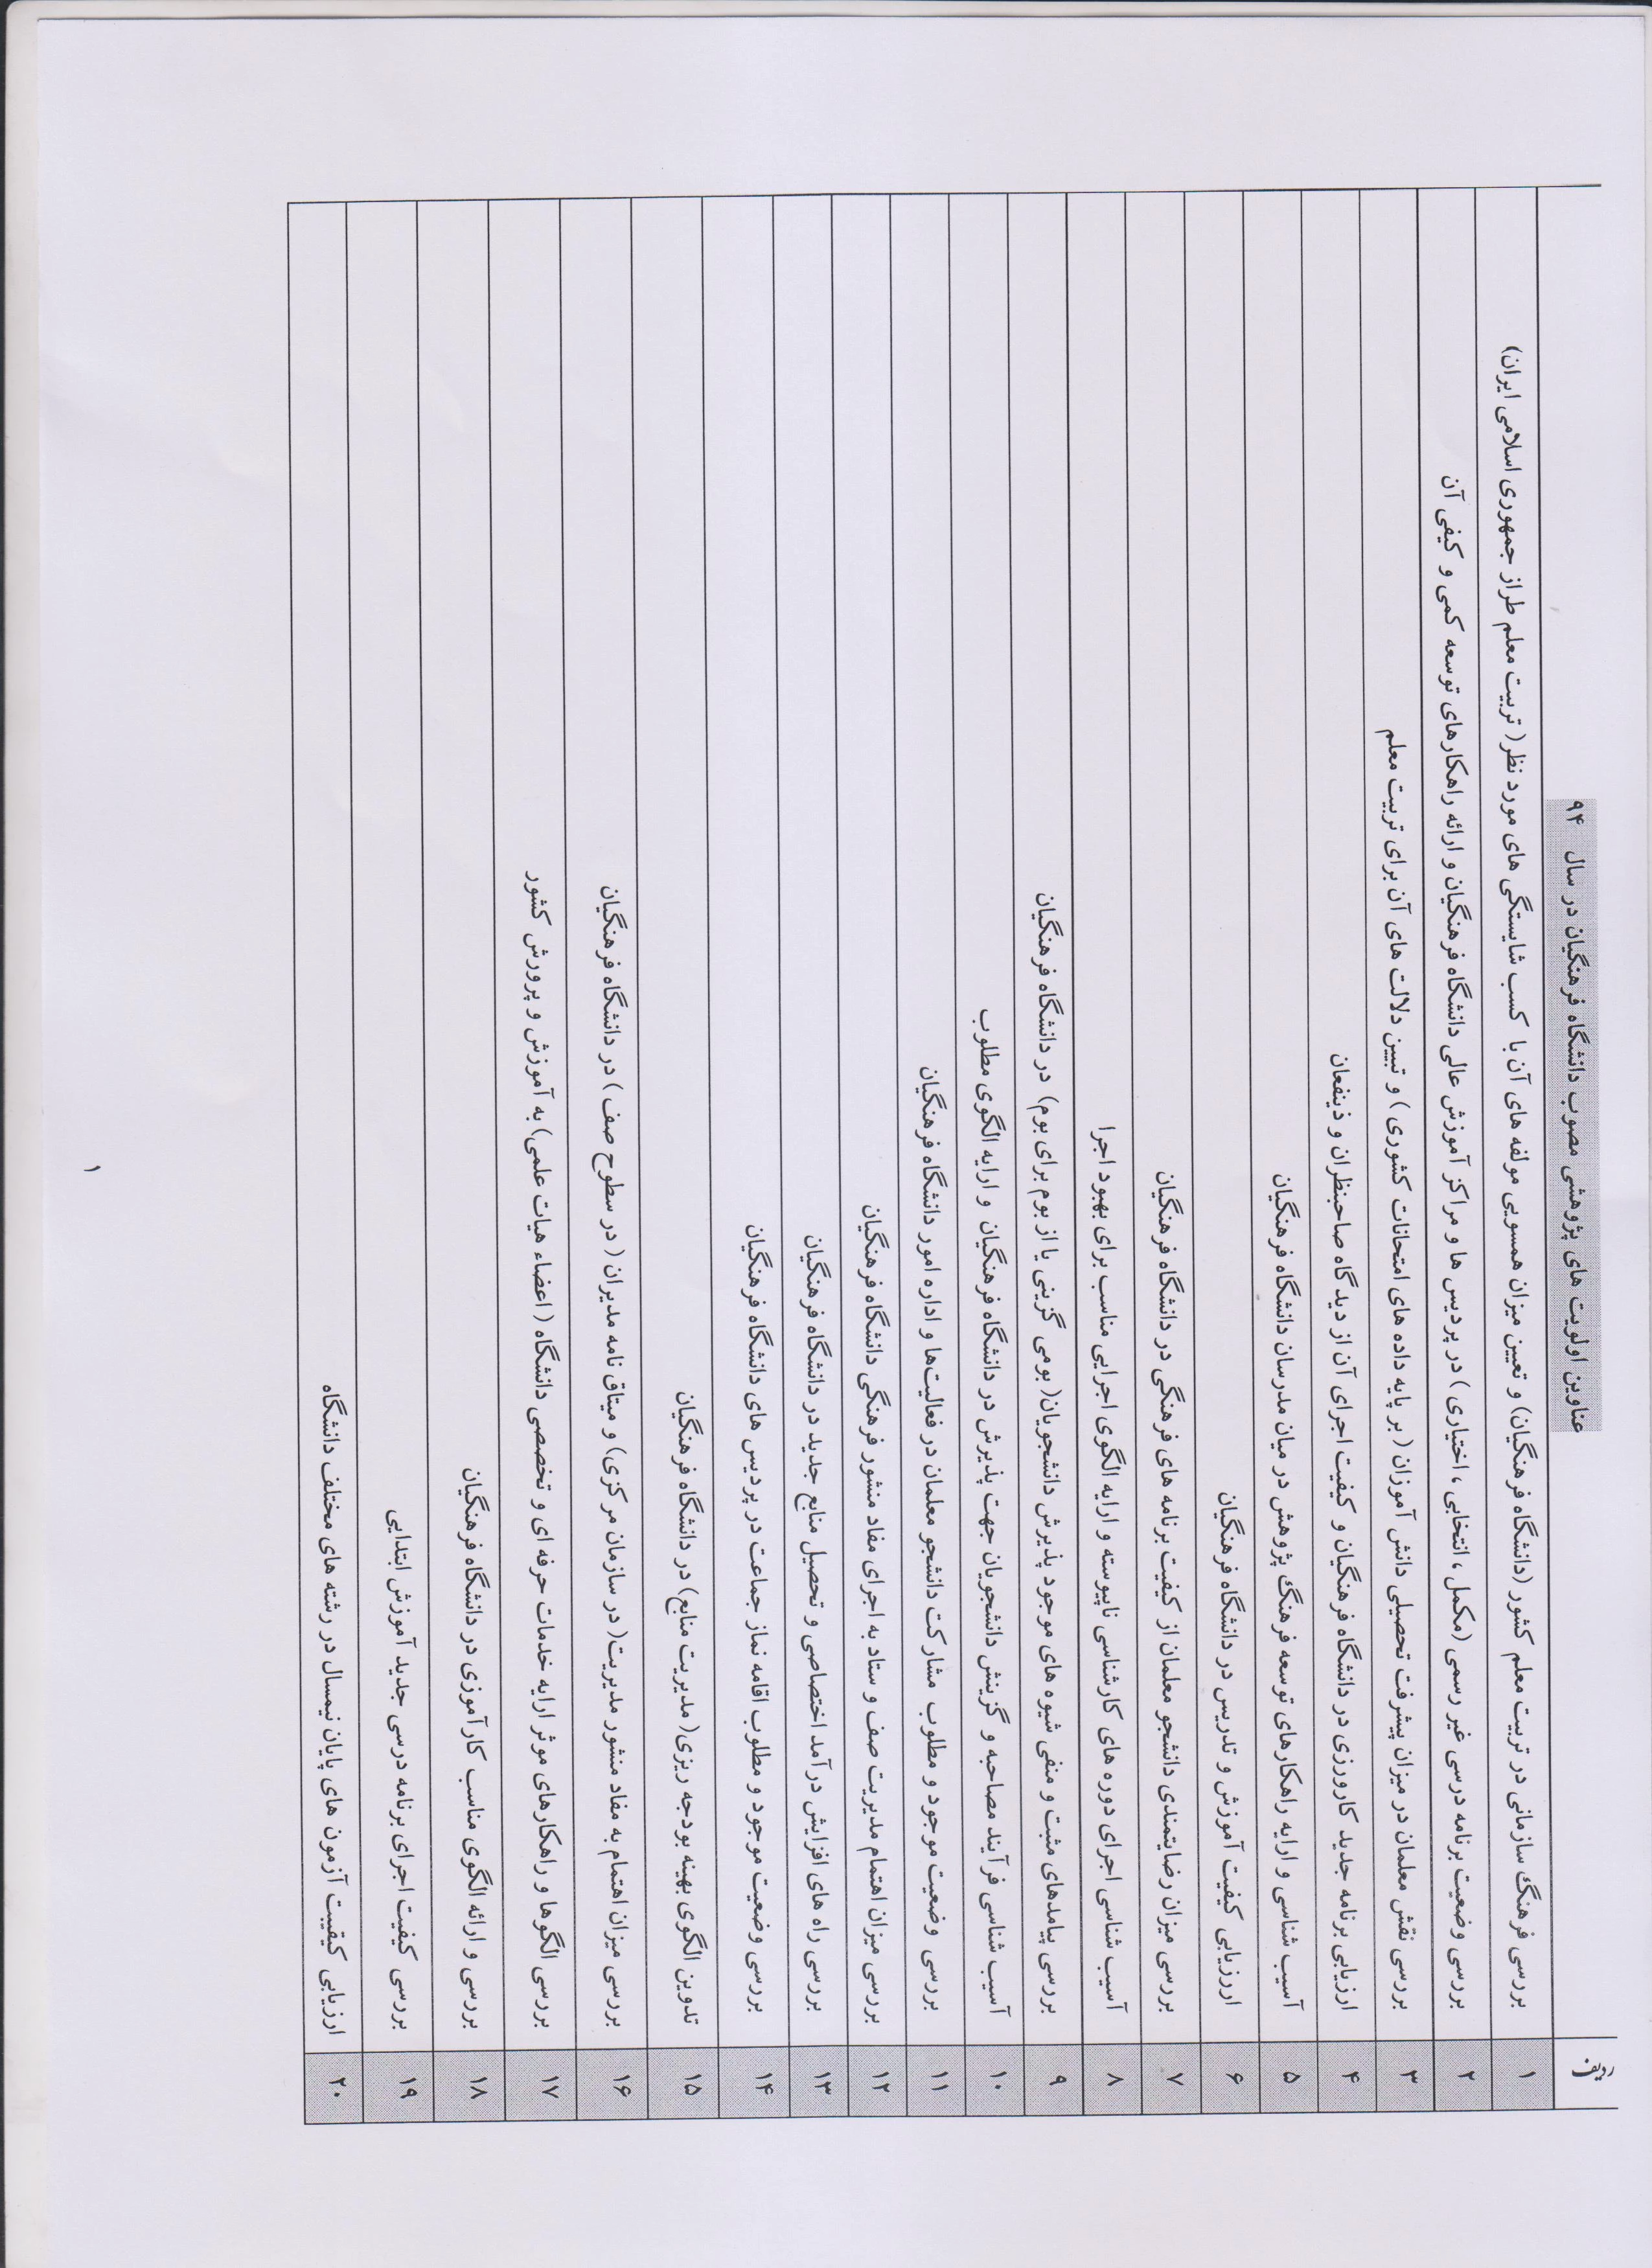 ردیف عناوین اولویت های پژوهشی مصوب دانشگاه فرهنگیان در سال ۹۴
۱ بررسی فرهنگ سازمانی در تربیت معلم کشور (دانشگاه فرهنگیان) و تعیین میزان همسویی مولفه های آن با کسب شایستگی های مورد نظر( تربیت معلم طراز جمهوری اسلامی ایران)
۲ بررسی وضعیت برنامه درسی غیر رسمی (مکمل ، انتخابی ، اختیاری ) در پردیس ها و مراکز آموزش عالی دانشگاه فرهنگیان و ارائه راهکارهای توسعه کمی و کیفی آن
۳ بررسی نقش معلمان در میزان پیشرفت تحصیلی دانش آموزان ( بر پایه داده های امتحانات کشوری ) و تبیین دلالت های آن برای تربیت معلم
۴ ارزیابی برنامه جدید کارورزی در دانشگاه فرهنگیان و کیفیت اجرای آن از دیدگاه صاحبنظران و ذینفعان
۵ آسیب شناسی و ارایه راهکارهای توسعه فرهنگ پژوهش در میان مدرسان دانشگاه فرهنگیان
۶ ارزیابی کیفیت آموزش و تدریس در دانشگاه فرهنگیان
۷ بررسی میزان رضایتمندی دانشجو معلمان از کیفیت برنامه های فرهنگی در دانشگاه فرهنگیان
۸ آسیب شناسی اجرای دوره های کارشناسی ناپیوسته و ارایه الگوی اجرایی مناسب برای بهبود اجرا
۹ بررسی پیامدهای مثبت و منفی شیوه های موجود پذیرش دانشجویان( بومی گزینی یا از بوم برای بوم) در دانشگاه فرهنگیان
۱۰ آسیب شناسی فرآیند مصاحبه و گزینش دانشجویان جهت پذیرش در دانشگاه فرهنگیان و ارایه الگوی مطلوب
۱۱ بررسی وضعیت موجود و مطلوب مشارکت دانشجو معلمان در فعالیت‌ها و اداره امور دانشگاه فرهنگیان
۱۲ بررسی میزان اهتمام مدیریت صف و ستاد به اجرای مفاد منشور فرهنگی دانشگاه فرهنگیان
۱۳ بررسی راه های افزایش درآمد اختصاصی و تحصیل منابع جدید در دانشگاه فرهنگیان
۱۴ بررسی وضعیت موجود و مطلوب اقامه نماز جماعت در پردیس های دانشگاه فرهنگیان
۱۵ تدوین الگوی بهینه بودجه ریزی( مدیریت منابع) در دانشگاه فرهنگیان
۱۶ بررسی میزان اهتمام به مفاد منشور مدیریت( در سازمان مرکزی) و میثاق نامه مدیران ( در سطوح صف ) در دانشگاه فرهنگیان
۱۷ بررسی الگوها و راهکارهای موثر ارایه خدمات حرفه ای و تخصصی دانشگاه ( اعضاء هیات علمی) به آموزش و پرورش کشور
۱۸ بررسی و ارائه الگوی مناسب کارآموزی در دانشگاه فرهنگیان
۱۹ بررسی کیفیت اجرای برنامه درسی جدید آموزش ابتدایی
۲۰ ارزیابی کیفییت آزمون های پایان نیمسال در رشته های مختلف دانشگاه
۱